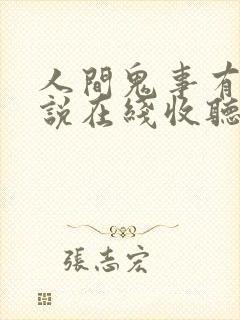 人間鬼事有
說在綫收聽
張志宏